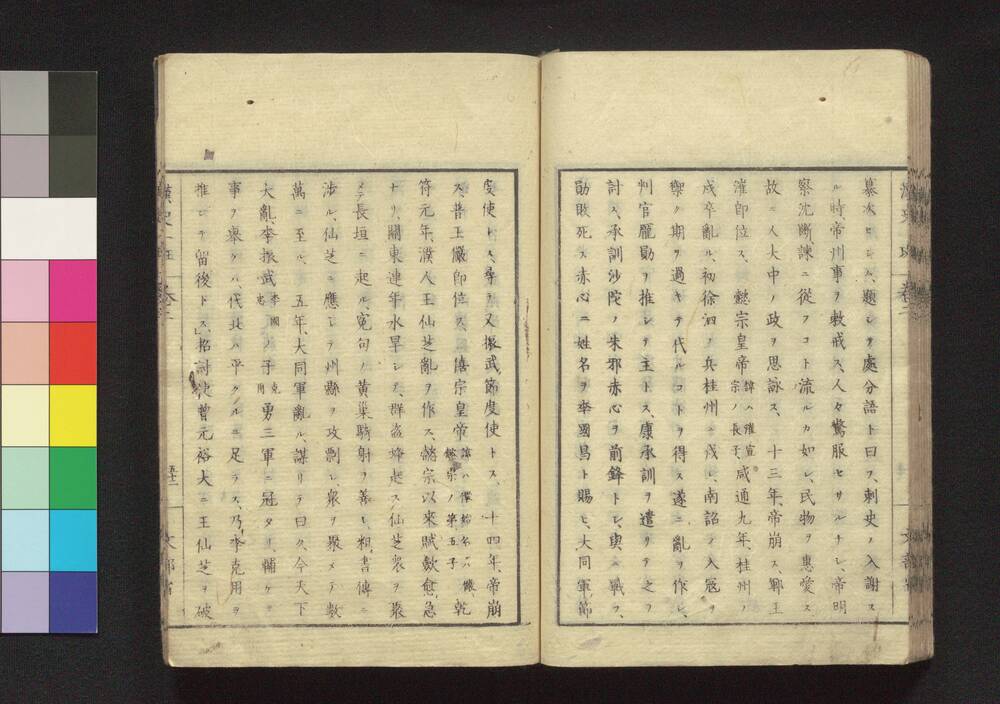 纂次セシム、題シテ處分語ト曰フ、刺史ノ入謝ス
ル時、帝州事ヲ敕戒ス、人々驚服セサルナシ、帝明
察沈斷、諫ニ從フコト流ルカ如シ、民物ヲ惠愛ス
故ニ人大中ノ政ヲ思詠ス、十三年、帝崩ス、鄆王
漼即位ス、懿宗皇帝諱ハ漼宣宗ノ長子、咸通九年、桂州ノ
戍卒亂ル、初徐泗ノ兵桂州ニ戍シ、南詔ノ入冦ヲ
禦ク期ヲ過キテ代ルコトヲ得ス遂ニ亂ヲ作シ、
判官龐勛ヲ推シテ主トス、康承訓ヲ遣リテ之ヲ
討ス、承訓沙陀ノ朱邪赤心ヲ前鋒トシ、與ニ戰フ、
勛敗死ス赤心ニ姓名ヲ李國昌ト賜ヒ、大同軍節
度使トス、尋テ又振武節度使トス、十四年、帝崩
ス普王儼即位ス、僖宗皇帝諱ハ儇始名ハ儼、懿宗ノ第五子乾
符元年、濮人王仙芝亂ヲ作ス、懿宗以來賦歛愈急
ナリ、關東連年水旱シテ、群盗烽起ス仙芝衆ヲ聚
メテ長垣ニ起ル、冤句ノ黄巣騎射ヲ善シ、粗書傳ニ
渉ル、仙芝ニ應シテ州縣ヲ攻剽シ、衆ヲ聚メテ數
萬ニ至ル、五年、大同軍亂ル、謀リテ曰ク、今天下
大亂、李振武李國昌ノ子克用勇三軍ニ冠タリ、輔ケテ
事ヲ擧クハ、代北ハ平クルニ足ラス、乃李克用ヲ
推シテ留後トス、招討使曾元裕大ニ王仙芝ヲ破
五十二
文部省